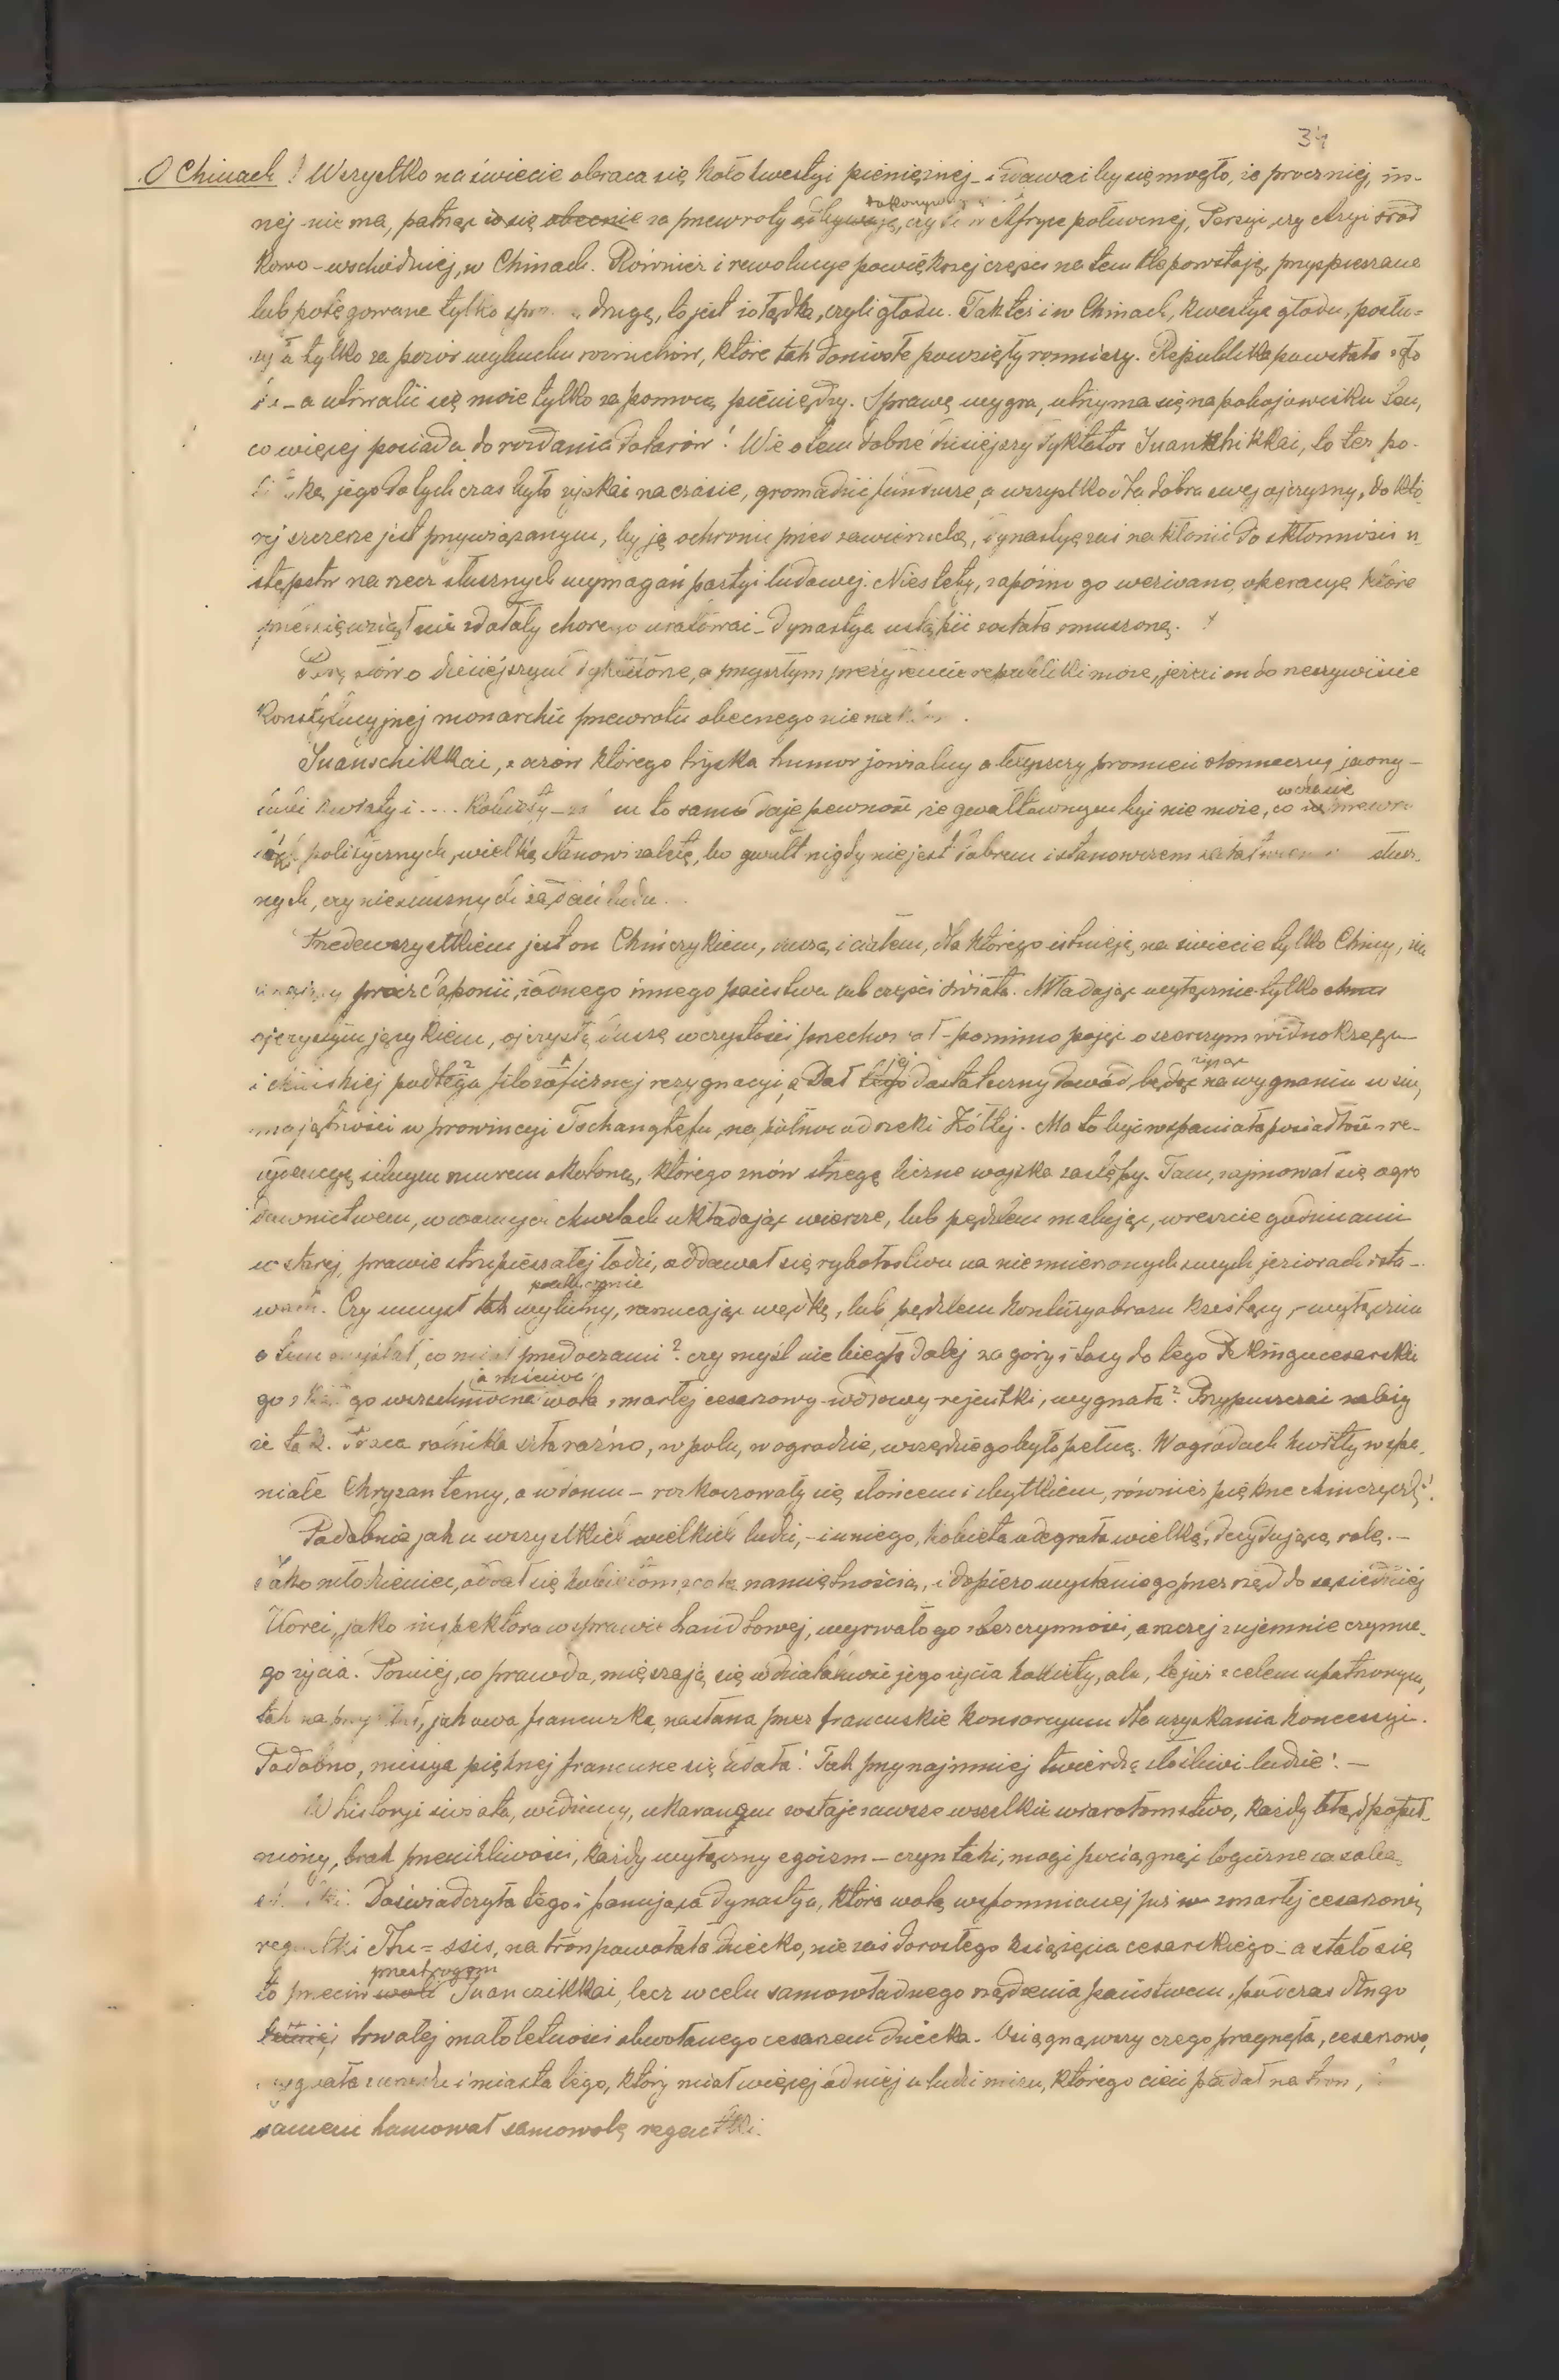 34
O Chinach! Wszystko na świecie obraca się koło kwestyi pieniężnej – zdawać by się mogło, że prócz niej, in-
nej nie ma, patrząc co się obecnie za przewroty odbywają, dokonywują czy to w Afryce północnej, Persyi, czy Azyi środ
kowo-wschodniej, w Chinach. Również i rewolucye powiększej części na tem tle powstają, przyspieszane
lub potęgowane tylko drugą, to jest żołądka, czyli głodu. Tak też i w Chinach, kwestya głodu, posłu-
żyła tylko za pozór wybuchu rozruchów, które tak doniosłe powzięły rozmiary. Republika powstała
– a utrwalić się może tylko za pomocą pieniędzy. Sprawę wygra, utrzyma się na pobojowisku ten,
co więcej posiada do rozdania dolarów! Wie o tem dobrze dzisiejszy dyktator Juanshikkai, to też po-
jego dotychczas było zyskać na czasie, gromadzić fundusze, a wszystko dla dobra swej ojczyzny, do któ-
rej szczerze jest przywiązanym, by ją ochronić przed zawieruchą, dynastyę zaś nakłonić do skłonności u-
stępstw na rzecz słusznych wymagań partyi ludowej. Niestety, zapóźno go wezwano, operacye które
przedsięwziął nie zdołały chorego uratować – dynastya ustąpić została zmuszoną.
Parę słów o dzisiejszym dyktatorze, a przyszłym prezydencie republiki może, jeżeli on do rzeczywiście
konstytucyjnej monarchii przewrotu obecnego nie
Juanschikkai, z oczów którego tryska humor jowialny a tłuszczy promień słoneczny,
kwiaty i .... kobiety – to samo daje pewność, że gwałtownym być nie może, co wczasie
politycznych, wielką stanowi zaletę, bo gwałt nigdy nie jest dobrem i stanowczem słusz-
nych, czy niesłusznych żądań ludu.
Przedewszystkiem jest on Chińczykiem, duszą i ciałem, dla którego istnieją na świecie tylko Chiny, nie
prócz Japonii, żadnego innego państwa lub części świata. Władając wyłącznie tylko
ojczystym językiem, ojczystą duszę w czystości przechował – pomimo pojęć o szerszym widnokręgu
i chińskiej podległa filozoficznej rezygnacyi, Dał tego jej dostateczny dowód, będąc żyjąc na wygnaniu w swej
majętności w prowincyi Tschangtefu, na północ od rzeki Żółtej. Ma to być wspaniała posiadłość z re-
zydencyą silnym murem okoloną, którego znów strzegą liczne wojska zastępy. Tam, zajmował się ogro
downictwem, w wolnych chwilach układając wiersze, lub pędzlem malując, wreszcie godzinami
w starej, prawie strupieszałej łodzi, oddawał się rybołostwu na niezmierzonych swych jeziorach i sta-
wach. Czy umysł tak wybitny, pouch zarzucając wędkę, lub pędzlem kontury obrazu kreślący, – wyłącznie
o tem myślał, co miał przed oczami? czy myśl nie biegła dalej za góry i lasy do tego Pekingu cesarskie
go z kąd go wszechmocna a mściwa wola zmarłej cesarzowy-wdowy-rejentki, wygnała? Przypuszczać należy
że tak. Praca rolnika szła raźno, w polu, w ogrodzie, wszędzie go było pełno. W ogrodach kwitły wspa-
niałe Chryzantemy, a w domu – rozkoszowały się słońcem i zbytkiem, również piękne chinczyczki!
Podobnie jak u wszystkich wielkich ludzi, – i u niego, kobieta odegrała wielką, decydującą rolę. –
Jako młodzieniec, oddał się kobietom z całą namiętnością, i dopiero wysłanie go przez rząd do sąsiedniej
Korei, jako inspektora w sprawie handlowej, wyrwało go z bezczynności, a raczej z ujemnie czynne-
go życia. Później, co prawda, mięszają się w działalność jego życia kobiety, ale, te już z celem upatrzonym,
tak na przykład, jak owa francuzka, nasłana przez francuskie konsorcyum dla uzyskania koncesyi.
Podobno, misya pięknej francuzce się udała! Tak przynajmniej twierdzą złośliwi ludzie! –
W historyi świata, widzimy, ukaranym zostaje zawsze wszelkie wiarołomstwo, każdy błąd popeł-
niony, brak przenikliwości, każdy wyłączny egoizm – czyn taki, mogi pociągnąć logiczne za sobą
Doświadczyła tego i panująca dynastya, która wolą wspomnianej już w zmarłej cesarzowej
regentki Thu=ssis, na tron powołała dziecko, nie zaś dorosłego księcia cesarskiego – a stało się
to przeciw woli przestrogom Juanczikkai, lecz w celu samowładnego rządzenia państwem, podczas długo
letniej trwałej małoletności obwołanego cesarzem dziecka. Osiągnąwszy czego pragnęła, cesarzowa,
wygnała z urzędu i miasta tego, który miał więcej od niej u ludzi miru, którego cień padał na tron,
samem hamował samowolę regentki.